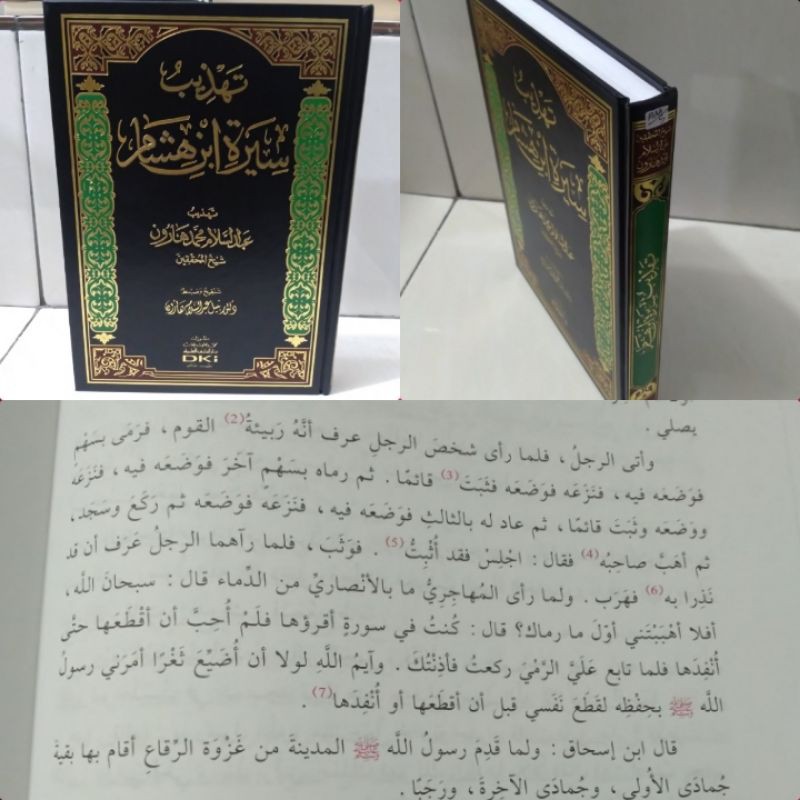 تهذيب
سيرة ابن هشام
تهذيب
عبد السلام محمد هارون
شيخ المحققين
تنقيح وضبط
دكتور نبيل عبد السلام هارون
DKi
تهذيب
سيرة ابن هشام
عبد السلام محمد هارون
تهذيب سيرة ابن هشام
يصلي .
وأتى الرجلُ ، فلما رأى شخصَ الرجلِ عرف أنَّهُ رَبيئةُ(2) القوم ، فرَمَى بسَهْمٍ
فوَضَعَه فيه ، فنَزَعَه فوَضَعَه فثَبَتَ(3) قائمًا . ثم رماه بسَهْمٍ آخرَ فوَضَعَه فيه ، فنَزَعَهُ
ووَضَعَه وثَبَتَ قائمًا ، ثم عاد له بالثالثِ فوَضَعَه فيه ، فنَزَعَه فوَضَعَه ثم ركَعَ وسَجَد ،
ثم أهَبَّ صاحِبُه(4) فقال : اجْلِسْ فقد أُثْبِتُّ(5) . فوَثَبَ ، فلما رآهما الرجلُ عَرَف أن قد
نَذِرا به(6) فهَرَب . ولما رأى المُهاجِرِيُّ ما بالأنْصاريِّ من الدِّماء قال : سبحانَ الله ،
أفلا أهْبَبْتَني أوّلَ ما رماك؟ قال : كُنتُ في سورةٍ أقرؤها فلَمْ أُحِبَّ أن أقْطَعَها حتَّى
أُنْفِدَها فلما تابع عَلَيَّ الرَّمْيَ ركعتُ فأذِنْتُكَ . وآيمُ اللَّهِ لولا أن أُضَيِّعَ ثَغْرًا أمَرَني رسولُ
اللَّه ﷺ بحِفْظِه لقَطَعَ نَفَسي قبل أن أقطَعَها أو أُنْفِدَها(7) .
قال ابن إسحاق : ولما قَدِمَ رسولُ اللَّه ﷺ المدينةَ من غَزْوَة الرِّقاعِ أقام بها بقيةَ
جُمادَى الأُولى ، وجُمادَى الآخِرةَ ، ورَجَبًا .